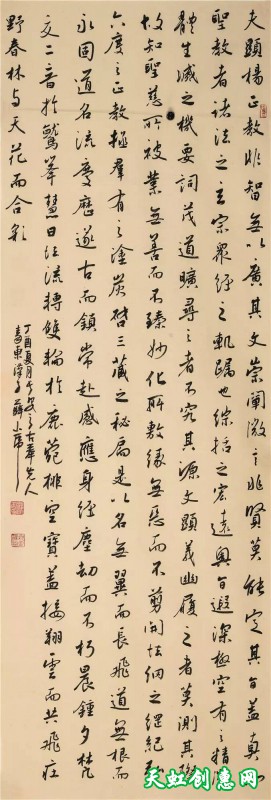 夫顯揚正教非智無以廣其文崇闡微言非賢莫能定其旨蓋真如
聖教者諸法之玄宗眾經之軌躅也綜括宏遠奧旨遐深極空有之精微
體生滅之機要詞茂道曠尋之者不究其源文顯義幽履之者莫測其際
故知聖慈所被業無善而不臻妙化所敷緣無惡而不剪開法網之綱紀弘
六度之正教拯羣有之塗炭啓三藏之秘扃是以名無翼而長飛道無根而
永固道名流慶歷遂古而鎮常赴感應身經塵劫而不朽晨鍾夕梵
交二音於鷲峯慧日法流轉雙輪於鹿苑排空寶蓋接翔雲而共飛莊
野春林与天花而合彩
丁酉夏月
天虹创意网
www.rainbow.cn